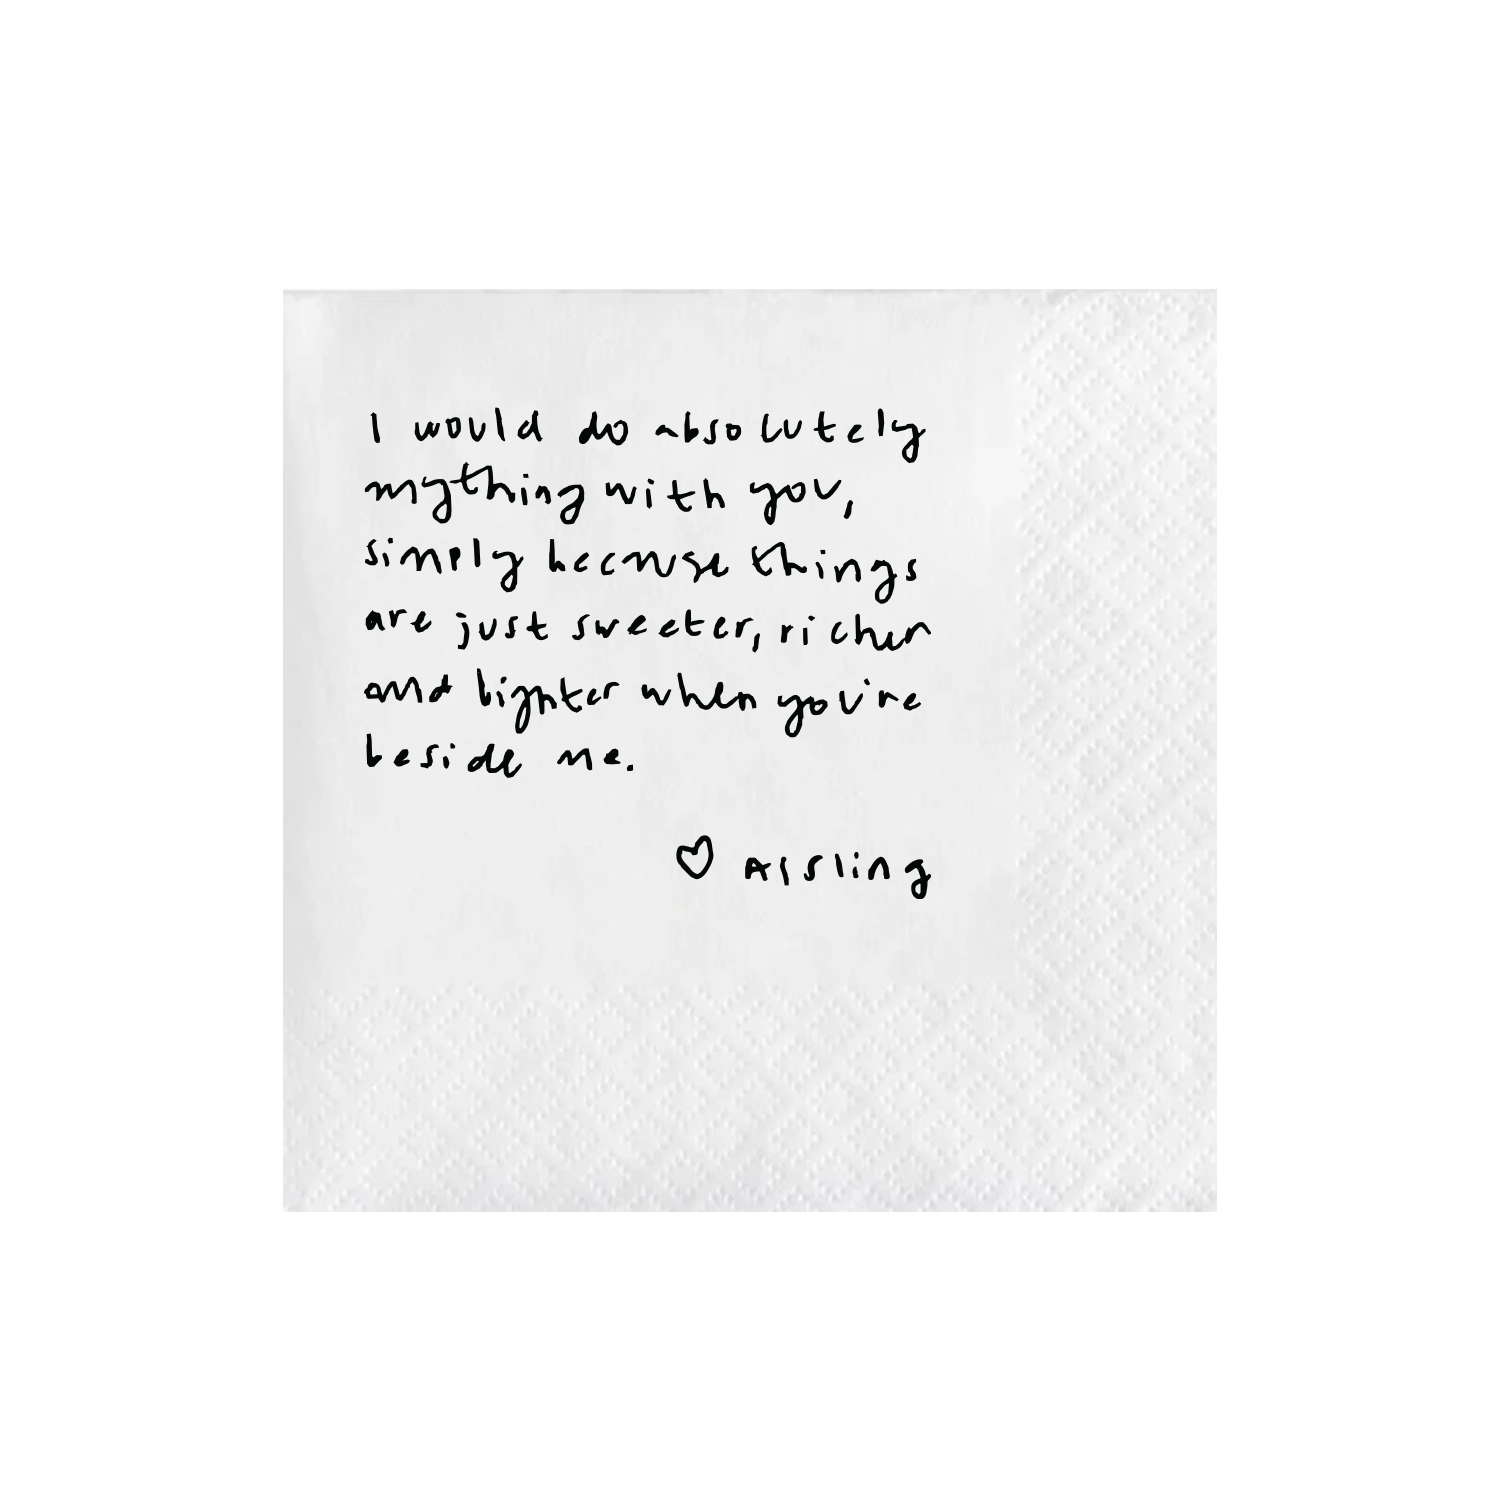 I would do absolutely
anything with you,
simply because things
are just sweeter, richer
and lighter when you're
beside me.
♡ Aisling